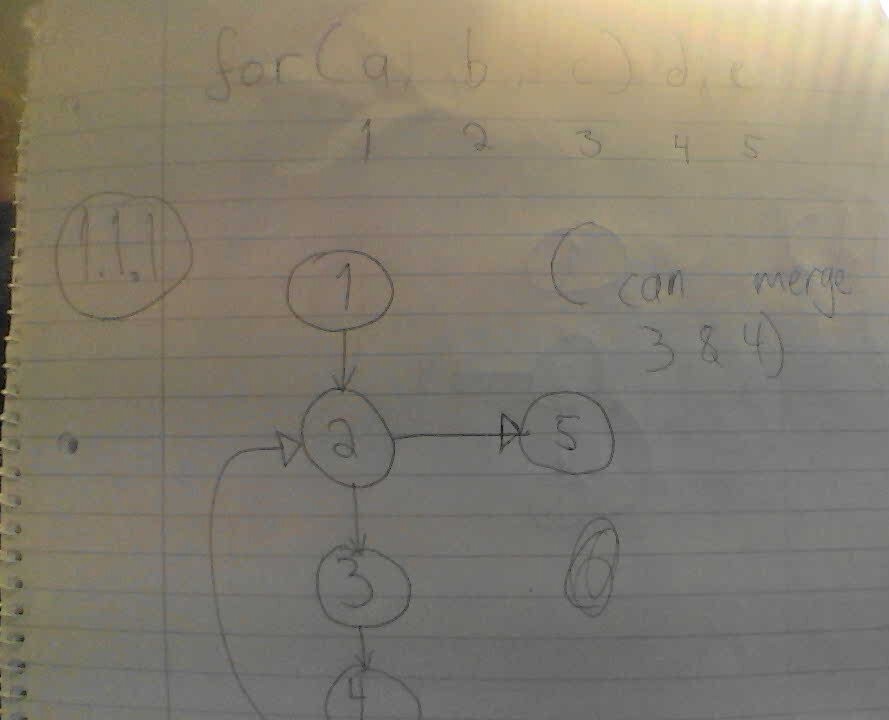 for(a, b, c) d, e
1 2 3 4 5
1.1.1
1
(can merge
3 & 4)
2
5
3
4